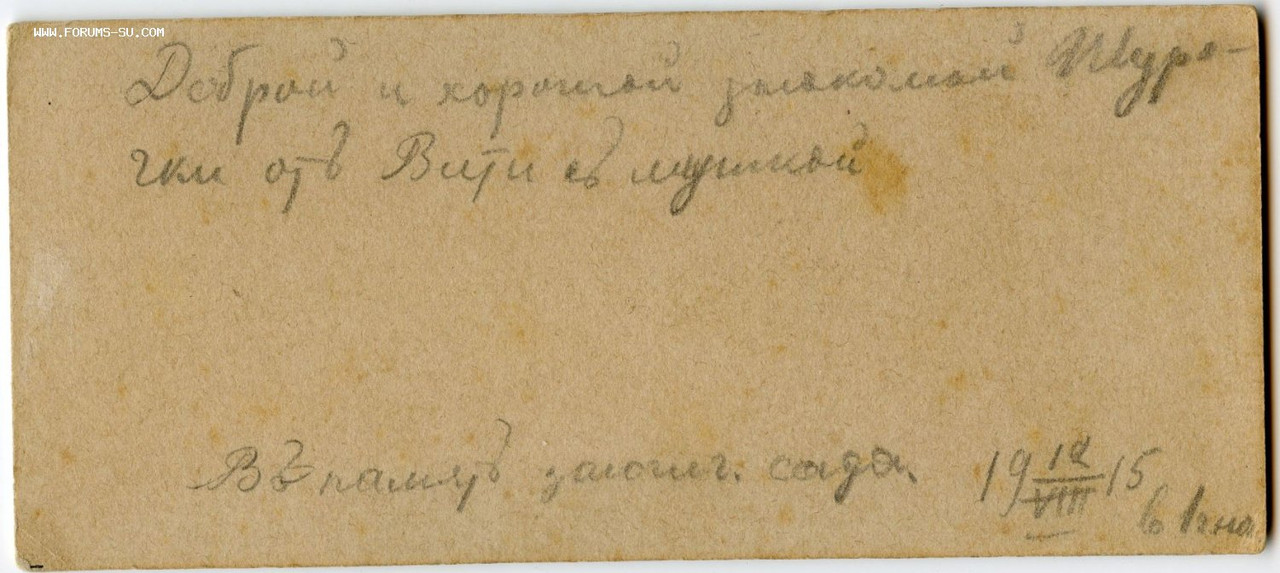 WWW.FORUMS-SU.COM
Доброй и хорошей знакомой Шуро-
чки отъ Вити съ мушкой
Въ память зоологич. сада. 19 18/VIII 15
в 1 ч но